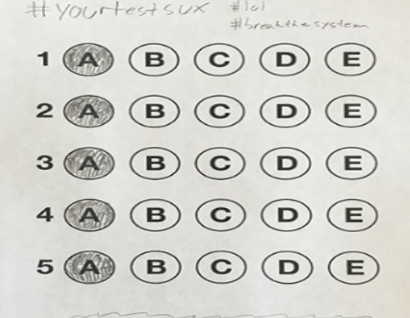 #yourtestsux #lol
#breakthesystem
1 A B C D E
2 A B C D E
3 A B C D E
4 A B C D E
5 A B C D E